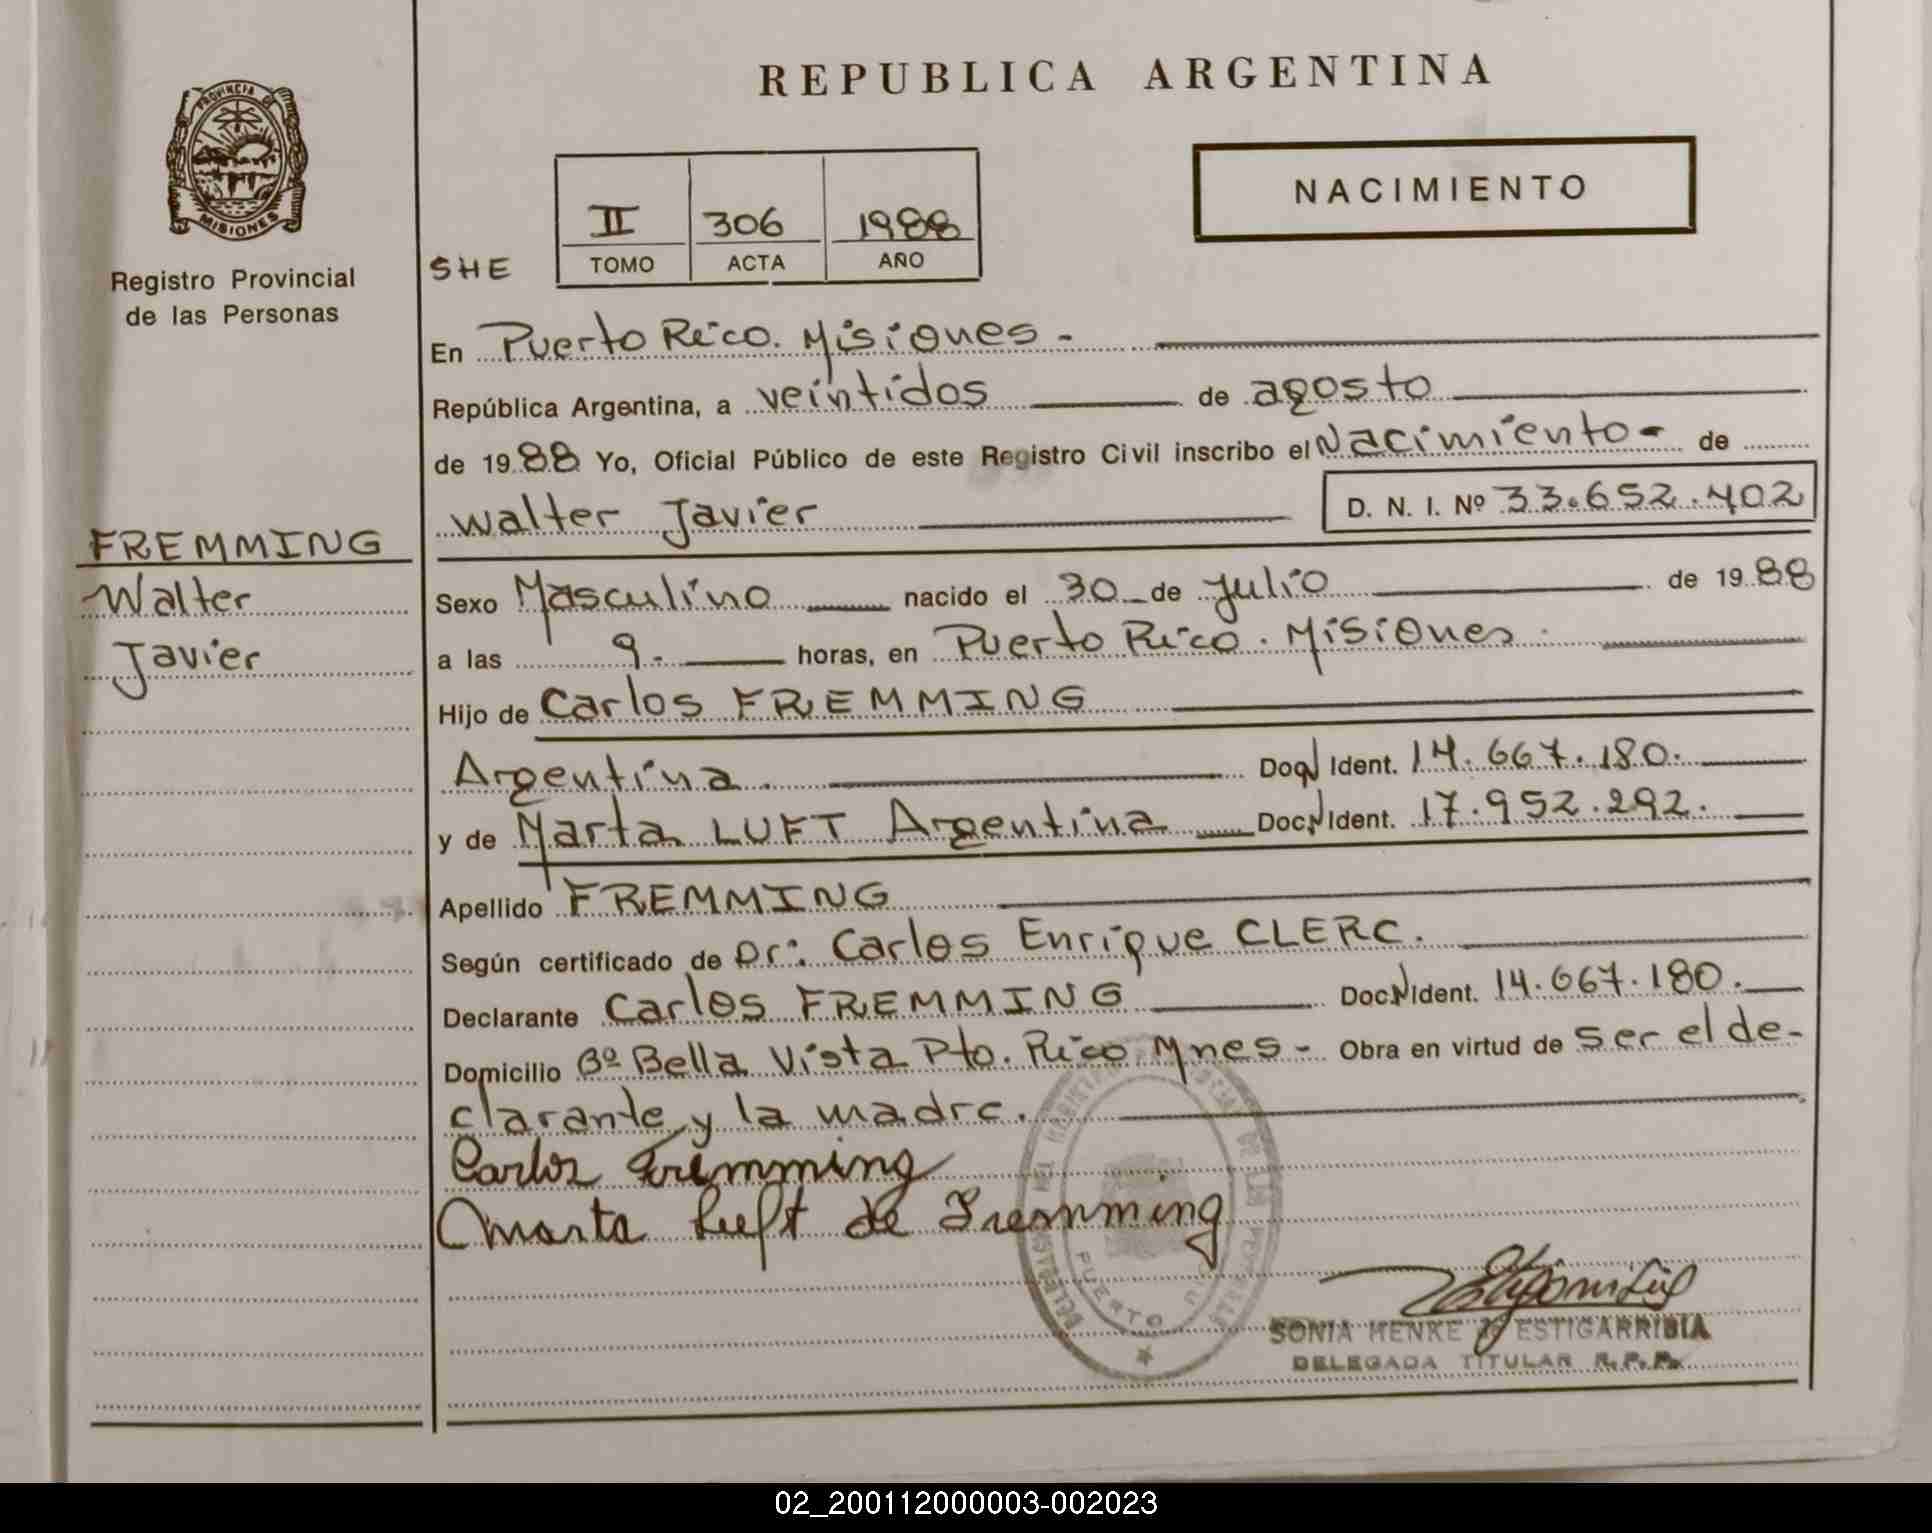 REPUBLICA ARGENTINA
PROVINCIA DE
MISIONES
Registro Provincial
de las Personas
NACIMIENTO
II 306 1988
SHE TOMO ACTA AÑO
En Puerto Rico. Misiones -
República Argentina, a veintidos de agosto
de 1988 Yo, Oficial Público de este Registro Civil inscribo el Nacimiento - de
Walter Javier D. N. I. Nº 33.652.402
FREMMING
Walter
Javier
Sexo Masculino nacido el 30 de Julio de 1988
a las 9. horas, en Puerto Rico. Misiones.
Hijo de Carlos FREMMING
Argentina. Doc. Ident. 14.667.180.
y de Marta LUFT Argentina Doc. Ident. 17.952.292.
Apellido FREMMING
Según certificado de Dr: Carlos Enrique CLERC.
Declarante Carlos FREMMING Doc. Ident. 14.667.180.
Domicilio Bº Bella Vista Pto. Rico Mnes - Obra en virtud de ser el de-
clarante y la madre.
Carlos Fremming
Marta Luft de Fremming
PUERTO RICO
SONIA HENKE de ESTIGARRIBIA
DELEGADA TITULAR R.P.P.
02_200112000003-002023